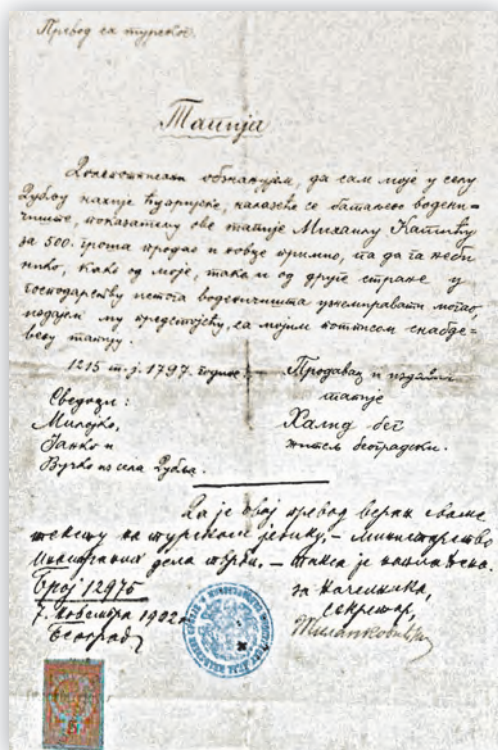 Превод са турског.
Тапија
Долепотписани обзнањујем, да сам моје у селу
Дубљу нахије Ћупријске, налазеће се батално водени-
чиште, показатељу ове тапије Михаилу Катићу
за 500. гроша продао и новце примио, па да га неби
нико, како од моје, тако и од друге стране у
господарству истога воденичишта узнемиравати могао,
издајем му предстојећу, са мојим потписом снабде-
вену тапију.
1215 т.ј. 1797. године.
Сведоци:
Милојко,
Јанко и
Вучко из села Дубља.
Продавац и издавач
тапије
Халид бег
житељ београдски.
Да је овај превод веран своме
тексту на турском језику. – Министарство
Иностраних дела тврди. – Такса је наплаћена.
Број 12975
7. Новембра 1902.
Београд
за Началника,
секретар,
5